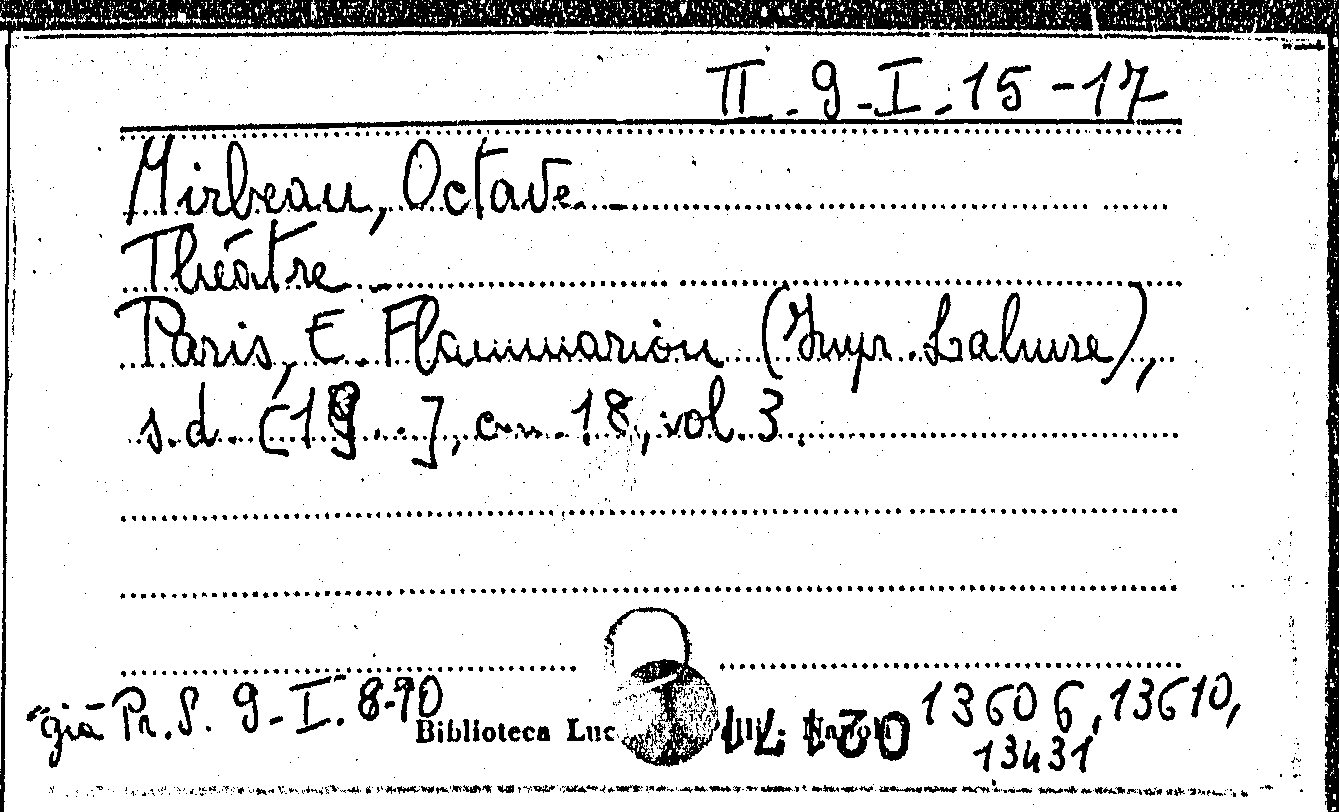 II. 9. I. 15-17
Mirbeau, Octave.
Théâtre
Paris, E. Flammarion (Impr. Lahure),
s.d. [19...], cm. 18, vol. 3.
"già Pr. S. 9-I. 8-10
Biblioteca Luc
13606, 13610,
13431